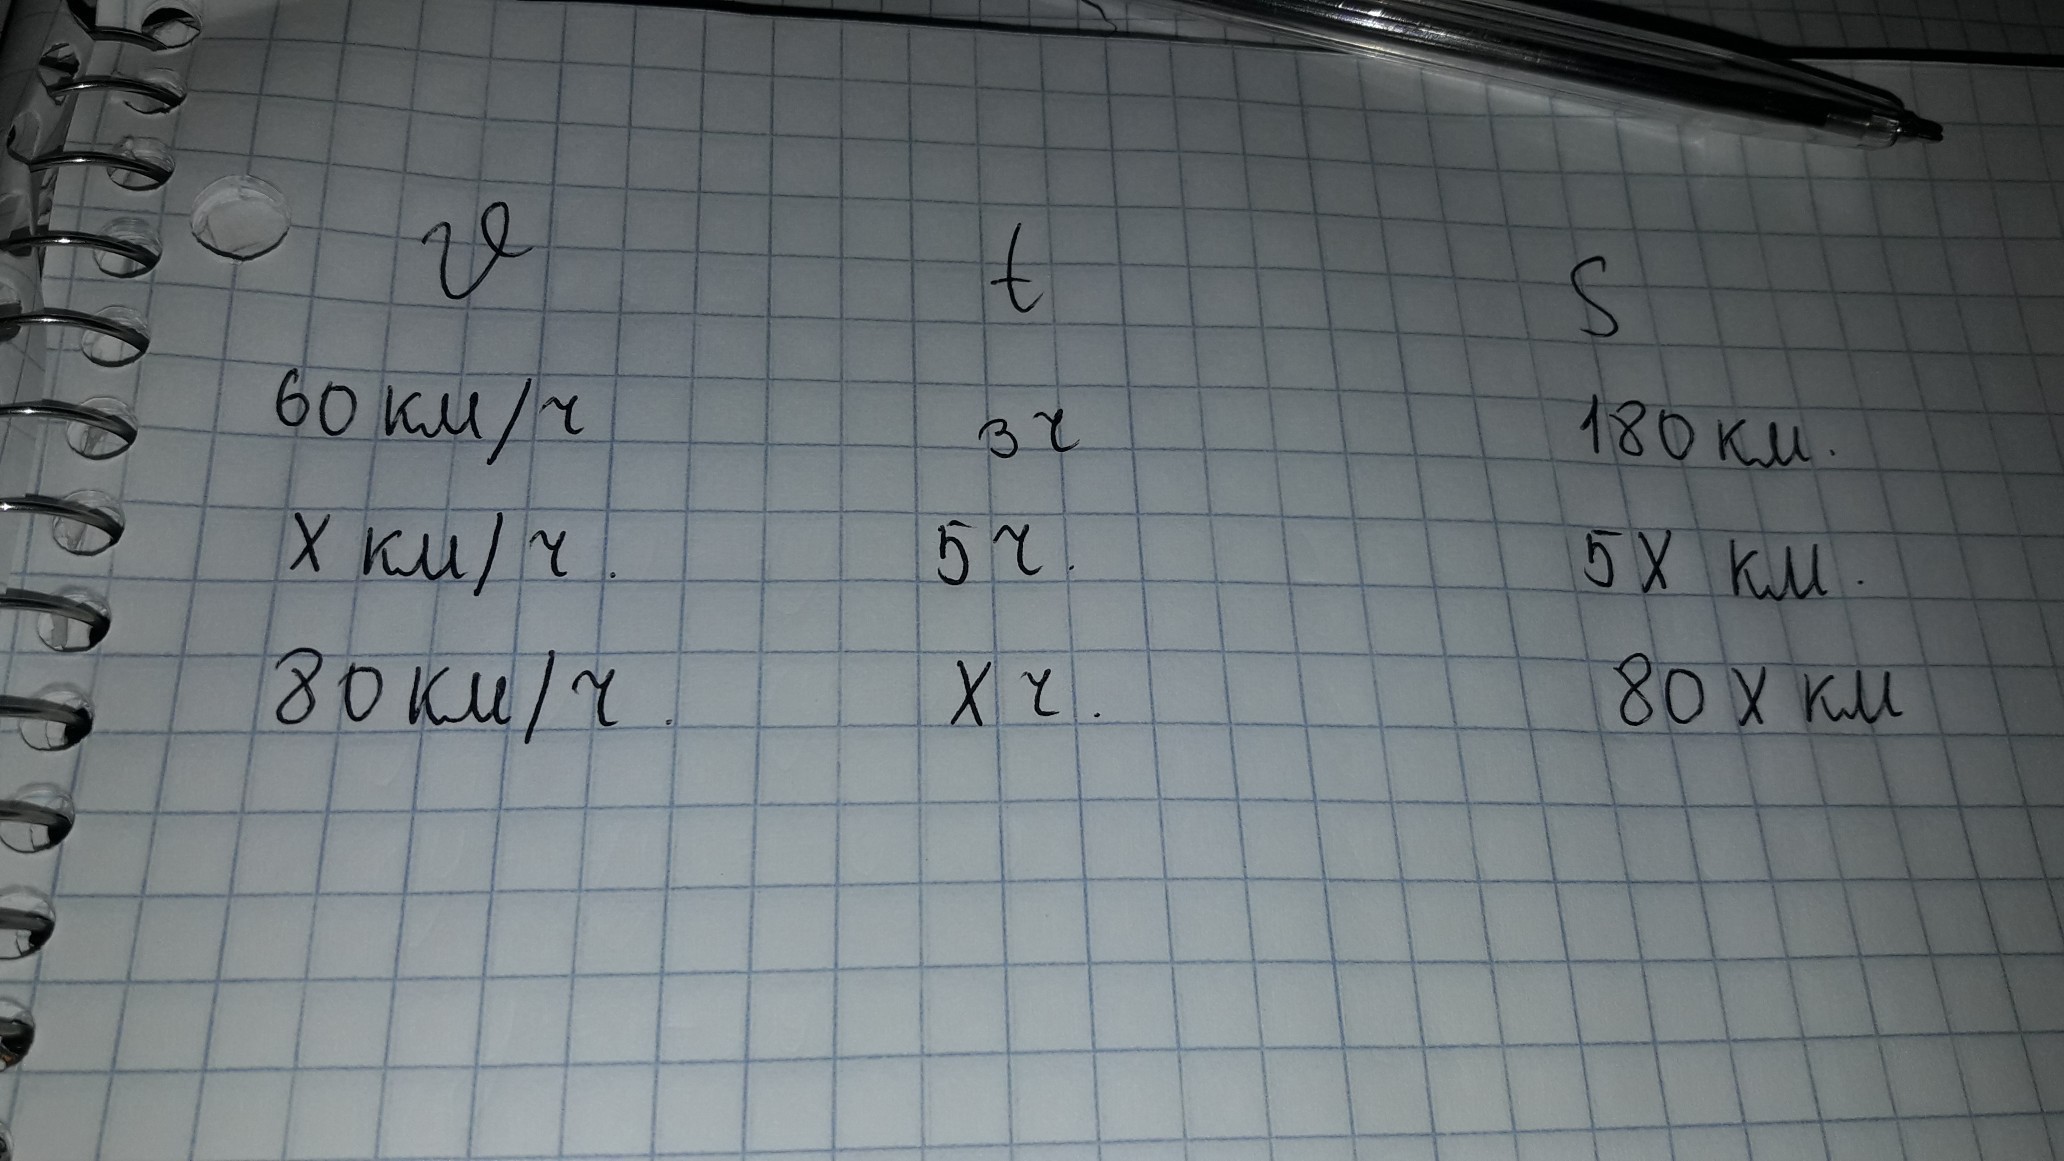 v t S
60 км/ч 3ч 180 км.
X км/ч. 5ч. 5X км.
80 км/ч. X ч. 80 X км